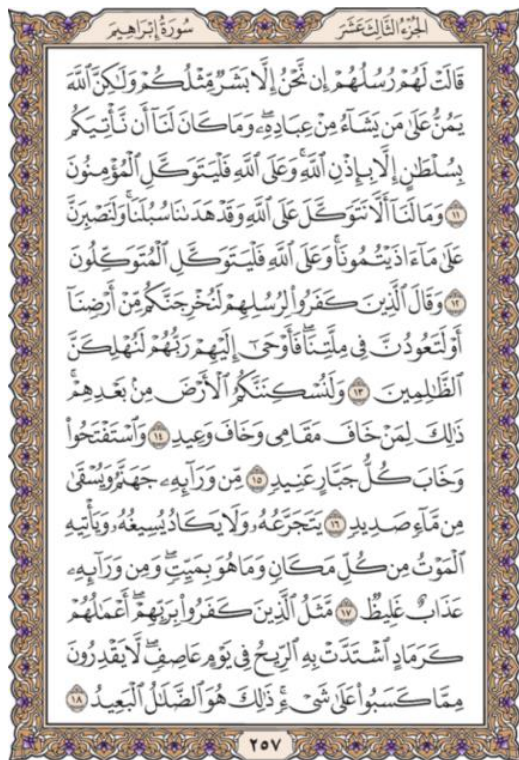 الجزء الثالث عشر سورة إبراهيم
قَالَتْ لَهُمْ رُسُلُهُمْ إِن نَّحْنُ إِلَّا بَشَرٌ مِّثْلُكُمْ وَلَٰكِنَّ ٱللَّهَ
يَمُنُّ عَلَىٰ مَن يَشَآءُ مِنْ عِبَادِهِۦۖ وَمَا كَانَ لَنَآ أَن نَّأْتِيَكُم
بِسُلْطَٰنٍ إِلَّا بِإِذْنِ ٱللَّهِۚ وَعَلَى ٱللَّهِ فَلْيَتَوَكَّلِ ٱلْمُؤْمِنُونَ
١١ وَمَا لَنَآ أَلَّا نَتَوَكَّلَ عَلَى ٱللَّهِ وَقَدْ هَدَىٰنَا سُبُلَنَاۚ وَلَنَصْبِرَنَّ
عَلَىٰ مَآ ءَاذَيْتُمُونَاۚ وَعَلَى ٱللَّهِ فَلْيَتَوَكَّلِ ٱلْمُتَوَكِّلُونَ
١٢ وَقَالَ ٱلَّذِينَ كَفَرُوا۟ لِرُسُلِهِمْ لَنُخْرِجَنَّكُم مِّنْ أَرْضِنَآ
أَوْ لَتَعُودُنَّ فِى مِلَّتِنَاۖ فَأَوْحَىٰٓ إِلَيْهِمْ رَبُّهُمْ لَنُهْلِكَنَّ
ٱلظَّٰلِمِينَ ١٣ وَلَنُسْكِنَنَّكُمُ ٱلْأَرْضَ مِنۢ بَعْدِهِمْۚ
ذَٰلِكَ لِمَنْ خَافَ مَقَامِى وَخَافَ وَعِيدِ ١٤ وَٱسْتَفْتَحُوا۟
وَخَابَ كُلُّ جَبَّارٍ عَنِيدٍ ١٥ مِّن وَرَآئِهِۦ جَهَنَّمُ وَيُسْقَىٰ
مِن مَّآءٍ صَدِيدٍ ١٦ يَتَجَرَّعُهُۥ وَلَا يَكَادُ يُسِيغُهُۥ وَيَأْتِيهِ
ٱلْمَوْتُ مِن كُلِّ مَكَانٍ وَمَا هُوَ بِمَيِّتٍۖ وَمِن وَرَآئِهِۦ
عَذَابٌ غَلِيظٌ ١٧ مَّثَلُ ٱلَّذِينَ كَفَرُوا۟ بِرَبِّهِمْۖ أَعْمَٰلُهُمْ
كَرَمَادٍ ٱشْتَدَّتْ بِهِ ٱلرِّيحُ فِى يَوْمٍ عَاصِفٍۖ لَّا يَقْدِرُونَ
مِمَّا كَسَبُوا۟ عَلَىٰ شَىْءٍۚ ذَٰلِكَ هُوَ ٱلضَّلَٰلُ ٱلْبَعِيدُ ١٨
٢٥٧